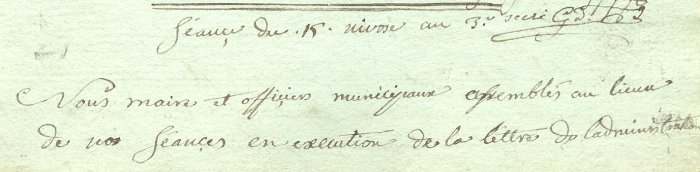 Séance du 15. nivose au 3.e
Nous maire et officiers municipaux assemblés au lieux
de nos séances en execution de la lettre de l'administrat